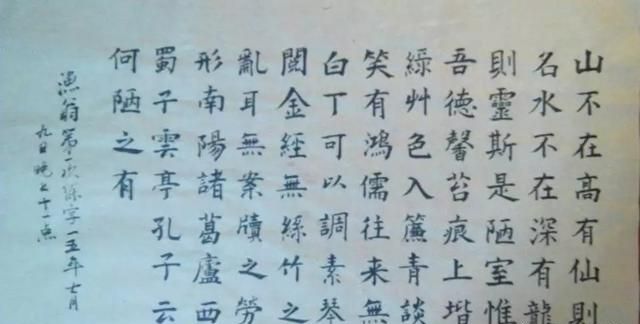 山不在高有仙則
名水不在深有龍
則靈斯是陋室惟
吾德馨苔痕上堦
綠艸色入簾青談
笑有鴻儒往来無
白丁可以調素琴
閱金經無絲竹之
亂耳無案牘之勞
形南陽諸葛廬西
蜀子雲亭孔子云
何陋之有
漁翁第一次练字一五年七月
九日晚上十一点